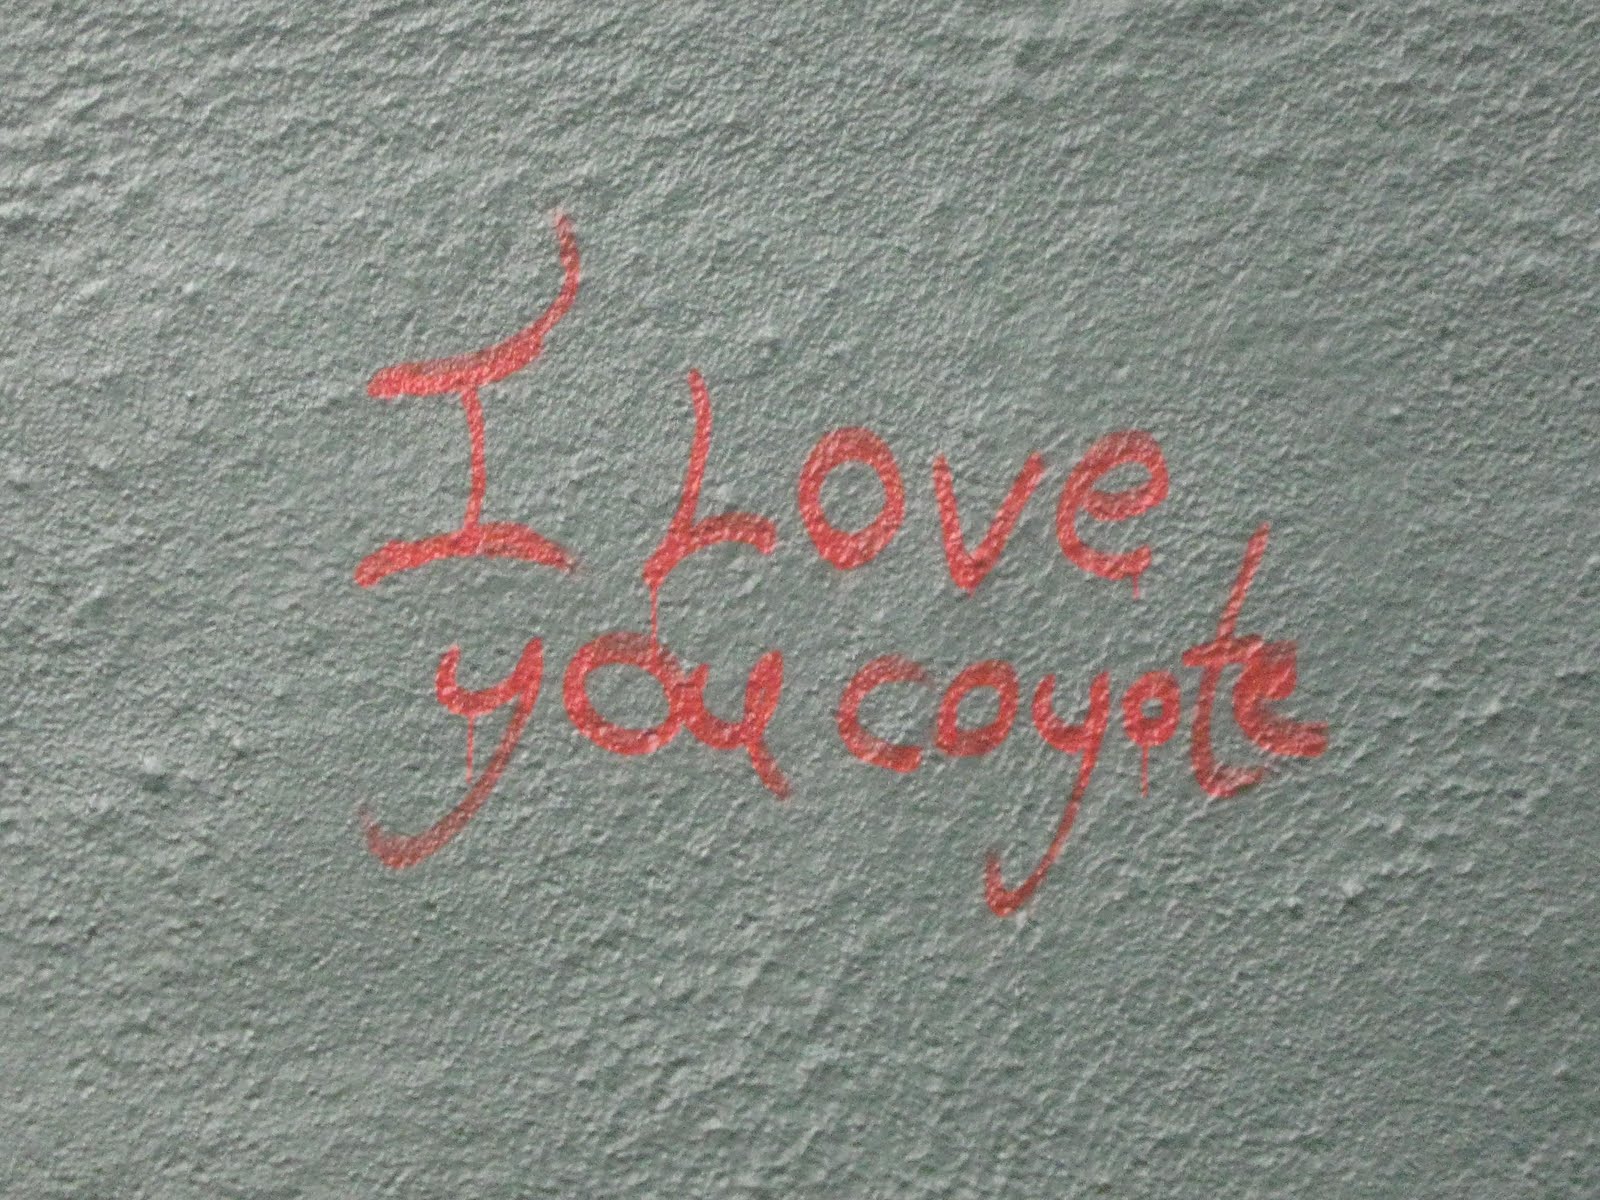 I Love
you coyote